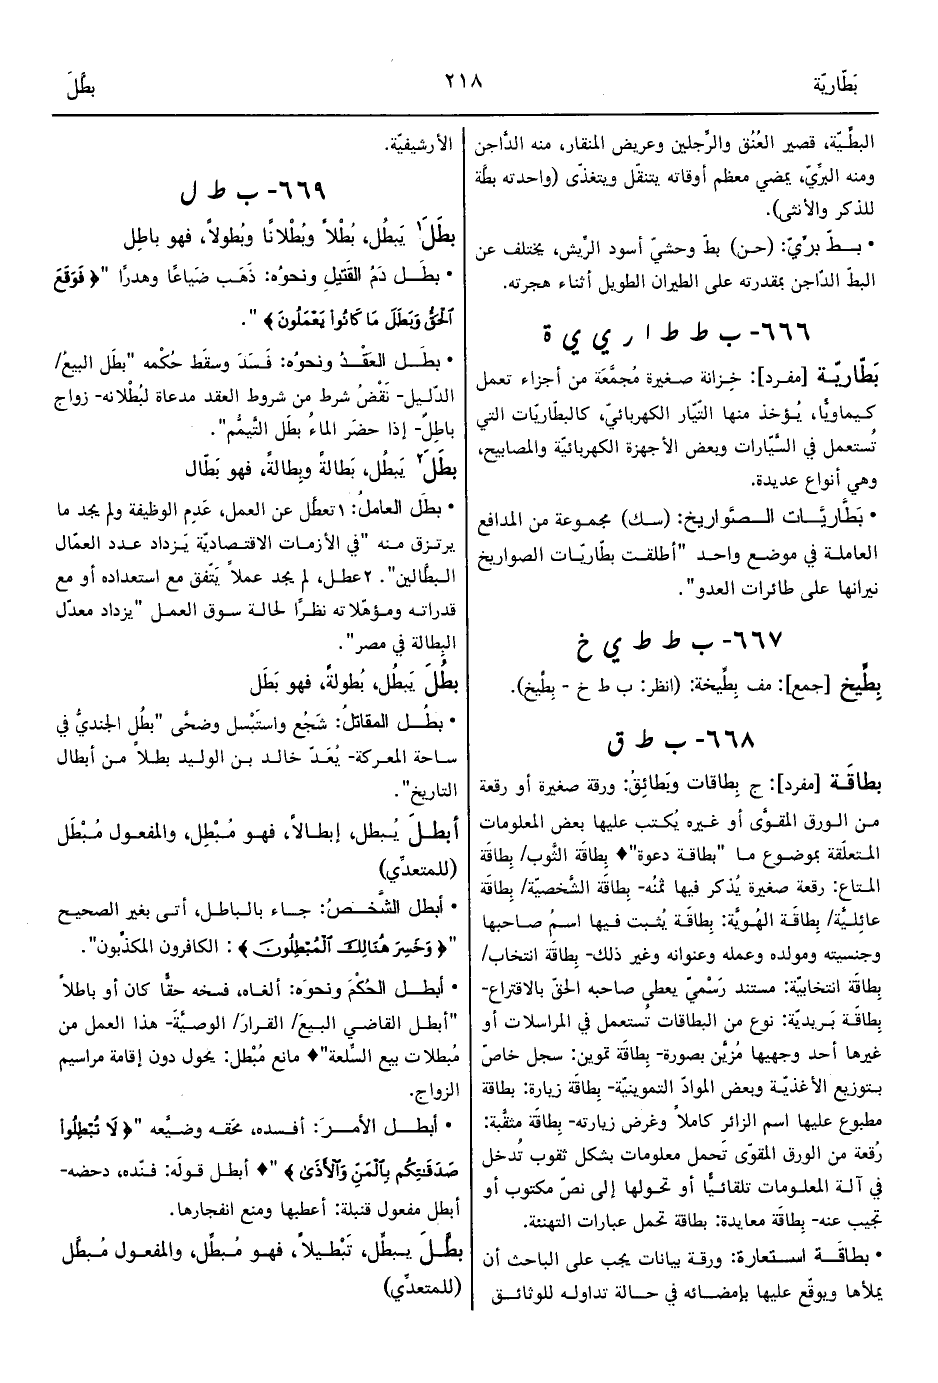 بَطّاريّة
٢١٨
بطَّلَ
البطِّيّة، قصير العُنُق والرِّجلين وعريض المنقار، منه الدَّاجن
ومنه البرِّيّ، يمضي معظم أوقاته يتنقَّل ويتغذَّى (واحدته بطَّة
للذكر والأنثى).
• بـطّ برّيّ: (حن) بطّ وحشيّ أسود الرِّيش، يختلف عن
البطّ الدَّاجن بمقدرته على الطيران الطويل أثناء هجرته.
٦٦٦- ب ط ط ا ر ي ي ة
بَطّاريّة [مفرد]: خِزانة صغيرة مُجمَّعَة من أجزاء تعمل
كيماويًّا، يُؤخذ منها التّيّار الكهربائيّ، كالبطّاريّات التي
تُستعمل في السَّيّارات وبعض الأجهزة الكهربائيّة والمصابيح،
وهي أنواع عديدة.
• بَطّاريَّات الصَّواريخ: (سك) مجموعة من المدافع
العاملة في موضع واحد "أطلقت بطّاريّات الصواريخ
نيرانها على طائرات العدو".
٦٦٧- ب ط ط ي خ
بِطِّيخ [جمع]: مف بِطِّيخة: (انظر: ب ط خ - بِطِّيخ).
٦٦٨- ب ط ق
بِطاقَة [مفرد]: ج بِطاقات وبَطائِقُ: ورقة صغيرة أو رقعة
من الورق المقوَّى أو غيره يُكتب عليها بعض المعلومات
المتعلّقة بموضوع ما "بطاقة دعوة"♦ بِطاقَة الثَّوب/ بِطاقَة
المتاع: رقعة صغيرة يُذكر فيها ثمنُه- بِطاقَة الشَّخصيّة/ بِطاقَة
عائليّة/ بِطاقَة الهُويَّة: بطاقَة يُثبت فيها اسمُ صاحبها
وجنسيته ومولده وعمله وعنوانه وغير ذلك- بِطاقَة انتخاب/
بِطاقَة انتخابيّة: مستند رَسْميّ يعطي صاحبه الحقّ بالاقتراع-
بِطاقَة بَريديّة: نوع من البطاقات تُستعمل في المراسلات أو
غيرها أحد وجهيها مُزيَّن بصورة- بِطاقَة تموين: سجل خاصّ
بتوزيع الأغذيّة وبعض الموادّ التموينيّة- بِطاقَة زيارة: بطاقة
مطبوع عليها اسم الزائر كاملاً وغرض زيارته- بِطاقَة مثقَّبة:
رُقعة من الورق المقوّى تَحمل معلومات بشكل ثقوب تُدخل
في آلة المعلومات تلقائيًّا أو تحولها إلى نصّ مكتوب أو
تجيب عنه- بِطاقَة معايدة: بطاقة تحمل عبارات التهنئة.
• بطاقَة استعارة: ورقة بيانات يجب على الباحث أن
يملأها ويوقّع عليها بإمضائه في حالة تداوله للوثائق
الأرشيفيّة.
٦٦٩- ب ط ل
بطَلَ¹ يَبطُل، بُطْلاً وبُطْلانًا وبُطولاً، فهو باطِل
• بطَل دَمُ القَتيلِ ونحوُه: ذَهَب ضَيَاعًا وهدرًا "﴿ فَوَقَعَ
الْحَقُّ وَبَطَلَ مَا كَانُوا يَعْمَلُونَ ﴾".
• بطَل العَقْدُ ونحوُه: فَسَدَ وسقَط حُكْمه "بطَل البيعُ/
الدّليل- نَقْضُ شرط من شروط العقد مدعاة لبُطْلانه- زواج
باطِلٌ- إذا حضَر الماءُ بطَل التَّيمُّم".
بطَلَ² يَبطُل، بَطالةً وبِطالةً، فهو بَطّال
• بطَل العاملُ: ١تعطَّل عن العمل، عَدِم الوظيفة ولم يجد ما
يرتـزق منه "في الأزمات الاقتصاديّة يَزداد عدد العمّال
البطّالين". ٢عطل، لم يجد عملاً يَتَّفق مع استعداده أو مع
قدراته ومؤهّلاته نظرًا لحالة سوق العمل "يزداد معدّل
البِطالة في مصر".
بطُلَ يَبطُل، بُطولةً، فهو بَطَل
• بطُل المقاتلُ: شَجُع واستَبْسل وضحَّى "بطُل الجنديُّ في
ساحة المعركة- يُعَدّ خالد بن الوليد بطلاً من أبطال
التاريخ".
أبطلَ يُبطل، إبطالاً، فهو مُبْطِل، والمفعول مُبْطَل
(للمتعدِّي)
• أبطل الشَّخصُ: جاء بالباطل، أتى بغير الصحيح
"﴿ وَخَسِرَ هُنَالِكَ الْمُبْطِلُونَ ﴾: الكافرون المكذّبون".
• أبطل الحُكْمَ ونحوَه: ألغاه، فسخه حقًّا كان أو باطلاً
"أبطل القاضي البيعَ/ القرارَ/ الوصيَّةَ- هذا العمل من
مُبطلات بيع السِّلعة"♦ مانع مُبْطل: يحول دون إقامة مراسيم
الزواج.
• أبطل الأمرَ: أفسده، محَقه وضيَّعه "﴿ لَا تُبْطِلُوا
صَدَقَاتِكُم بِالْمَنِّ وَالْأَذَى ﴾"♦ أبطل قولَه: فنّده، دحضه-
أبطل مفعول قنبلة: أعطبها ومنع انفجارها.
بطَّلَ يبطِّل، تَبْطيلاً، فهو مُبطِّل، والمفعول مُبطَّل
(للمتعدِّي)